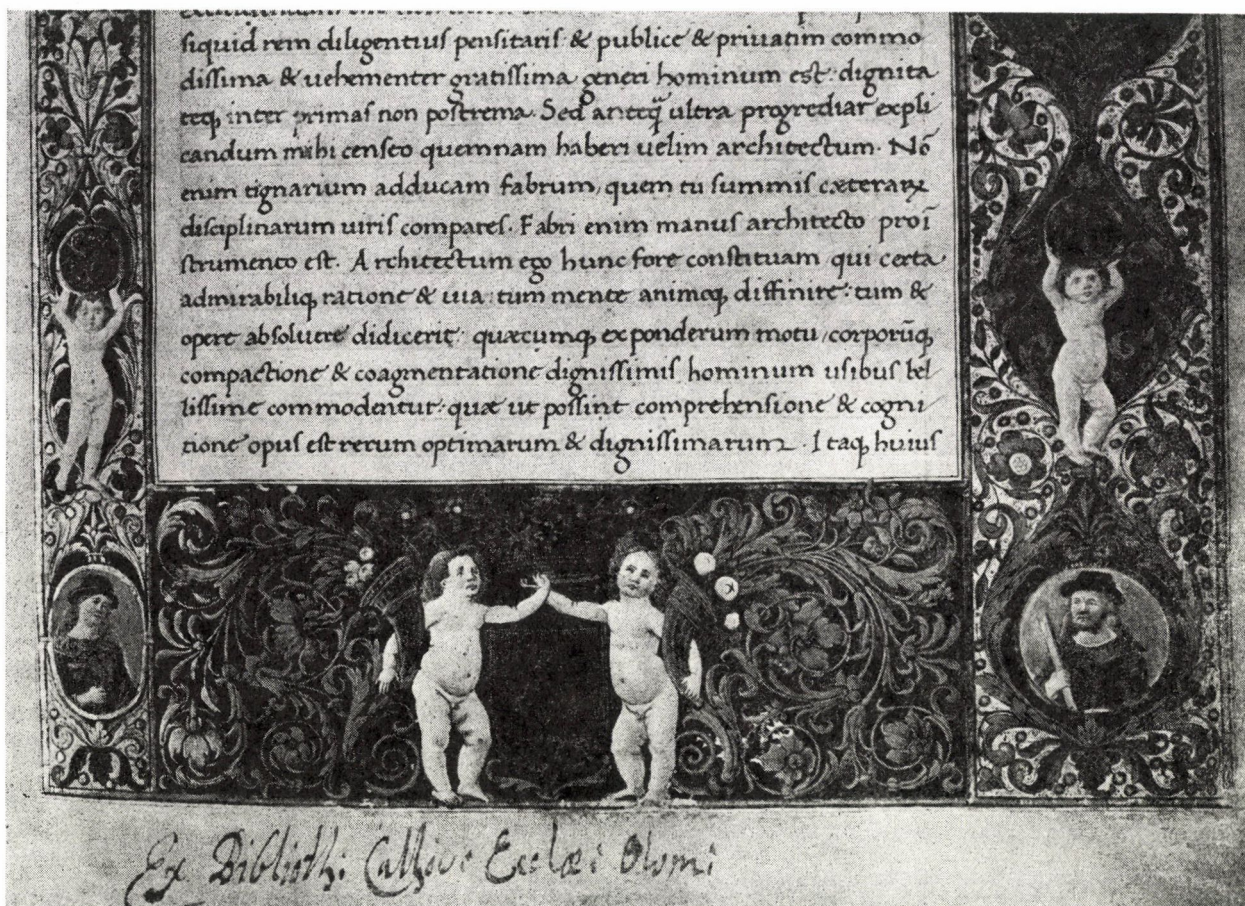 siquid rem diligentius pensitaris & publice & priuatim commo
dissima & uehementer gratissima generi hominum est: dignita
teq; inter primas non postrema. Sed anteq̃ ultra progrediar expli
candum mihi censeo quemnam haberi uelim architectum. Nõ
enim tignarium adducam fabrum, quem tu summis cæterarꝝ
disciplinarum uiris compares. Fabri enim manus architecto proĩ
strumento est. Architectum ego hunc fore constituam qui certa
admirabiliq; ratione & uia: tum mente animoq; diffinire: tum &
opere absoluere didicerit: quæcumq; ex ponderum motu, corporũq;
compactione & coagmentatione dignissimis hominum usibus bel
lissime commodentur: quæ ut possint comprehensione & cogni
tione opus est rerum optimarum & dignissimarum. Itaq; huius
Ex Biblioth: Cathive Ecclæ: Olom: